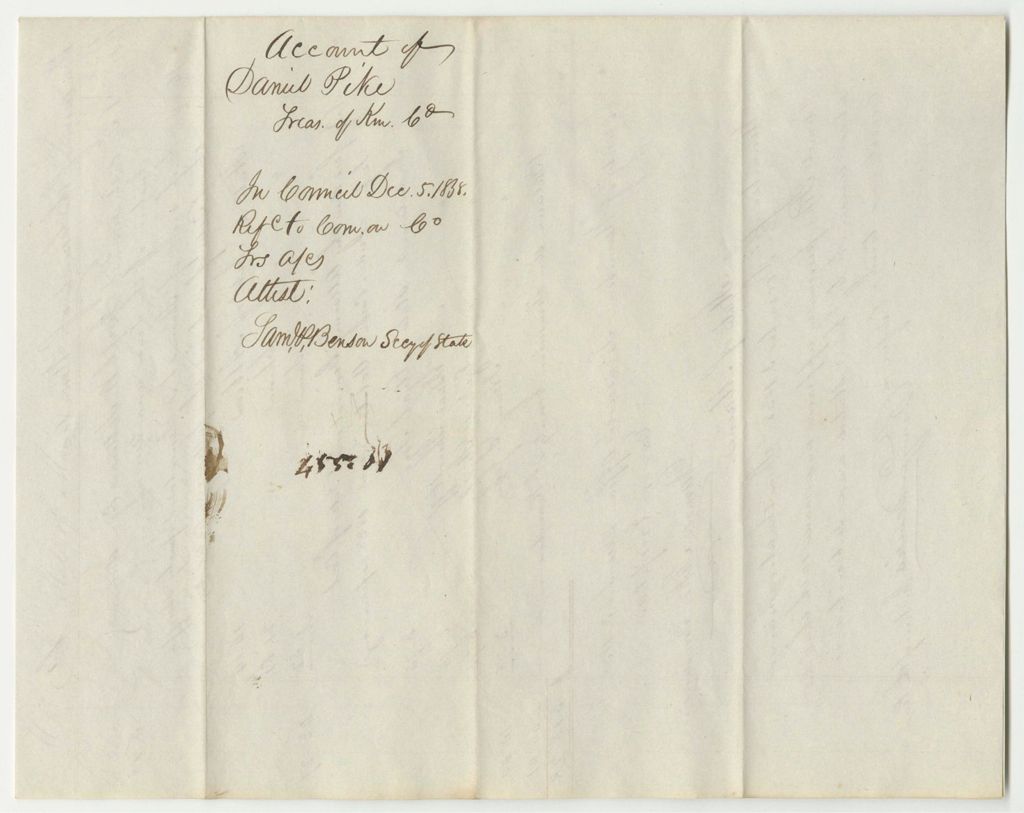 Account of
Daniel Pike
Treas. of Ken. Co
In Council Dec. 5. 1838.
Refd to Com. on Co
Trs a/cs
Attest:
Saml P. Benson Secy of State